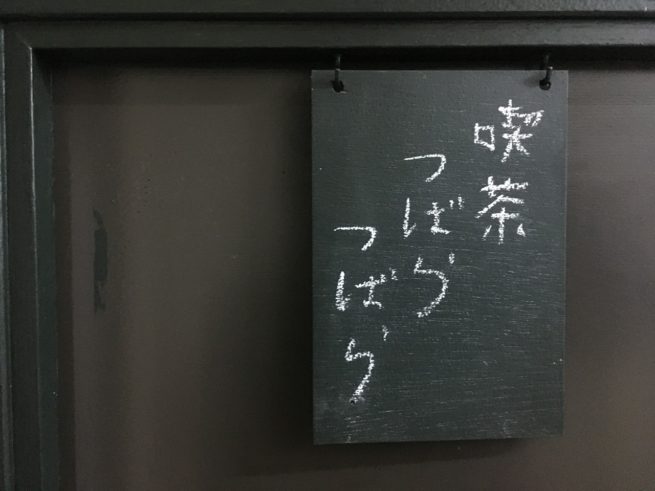 喫茶
つばら
つばら